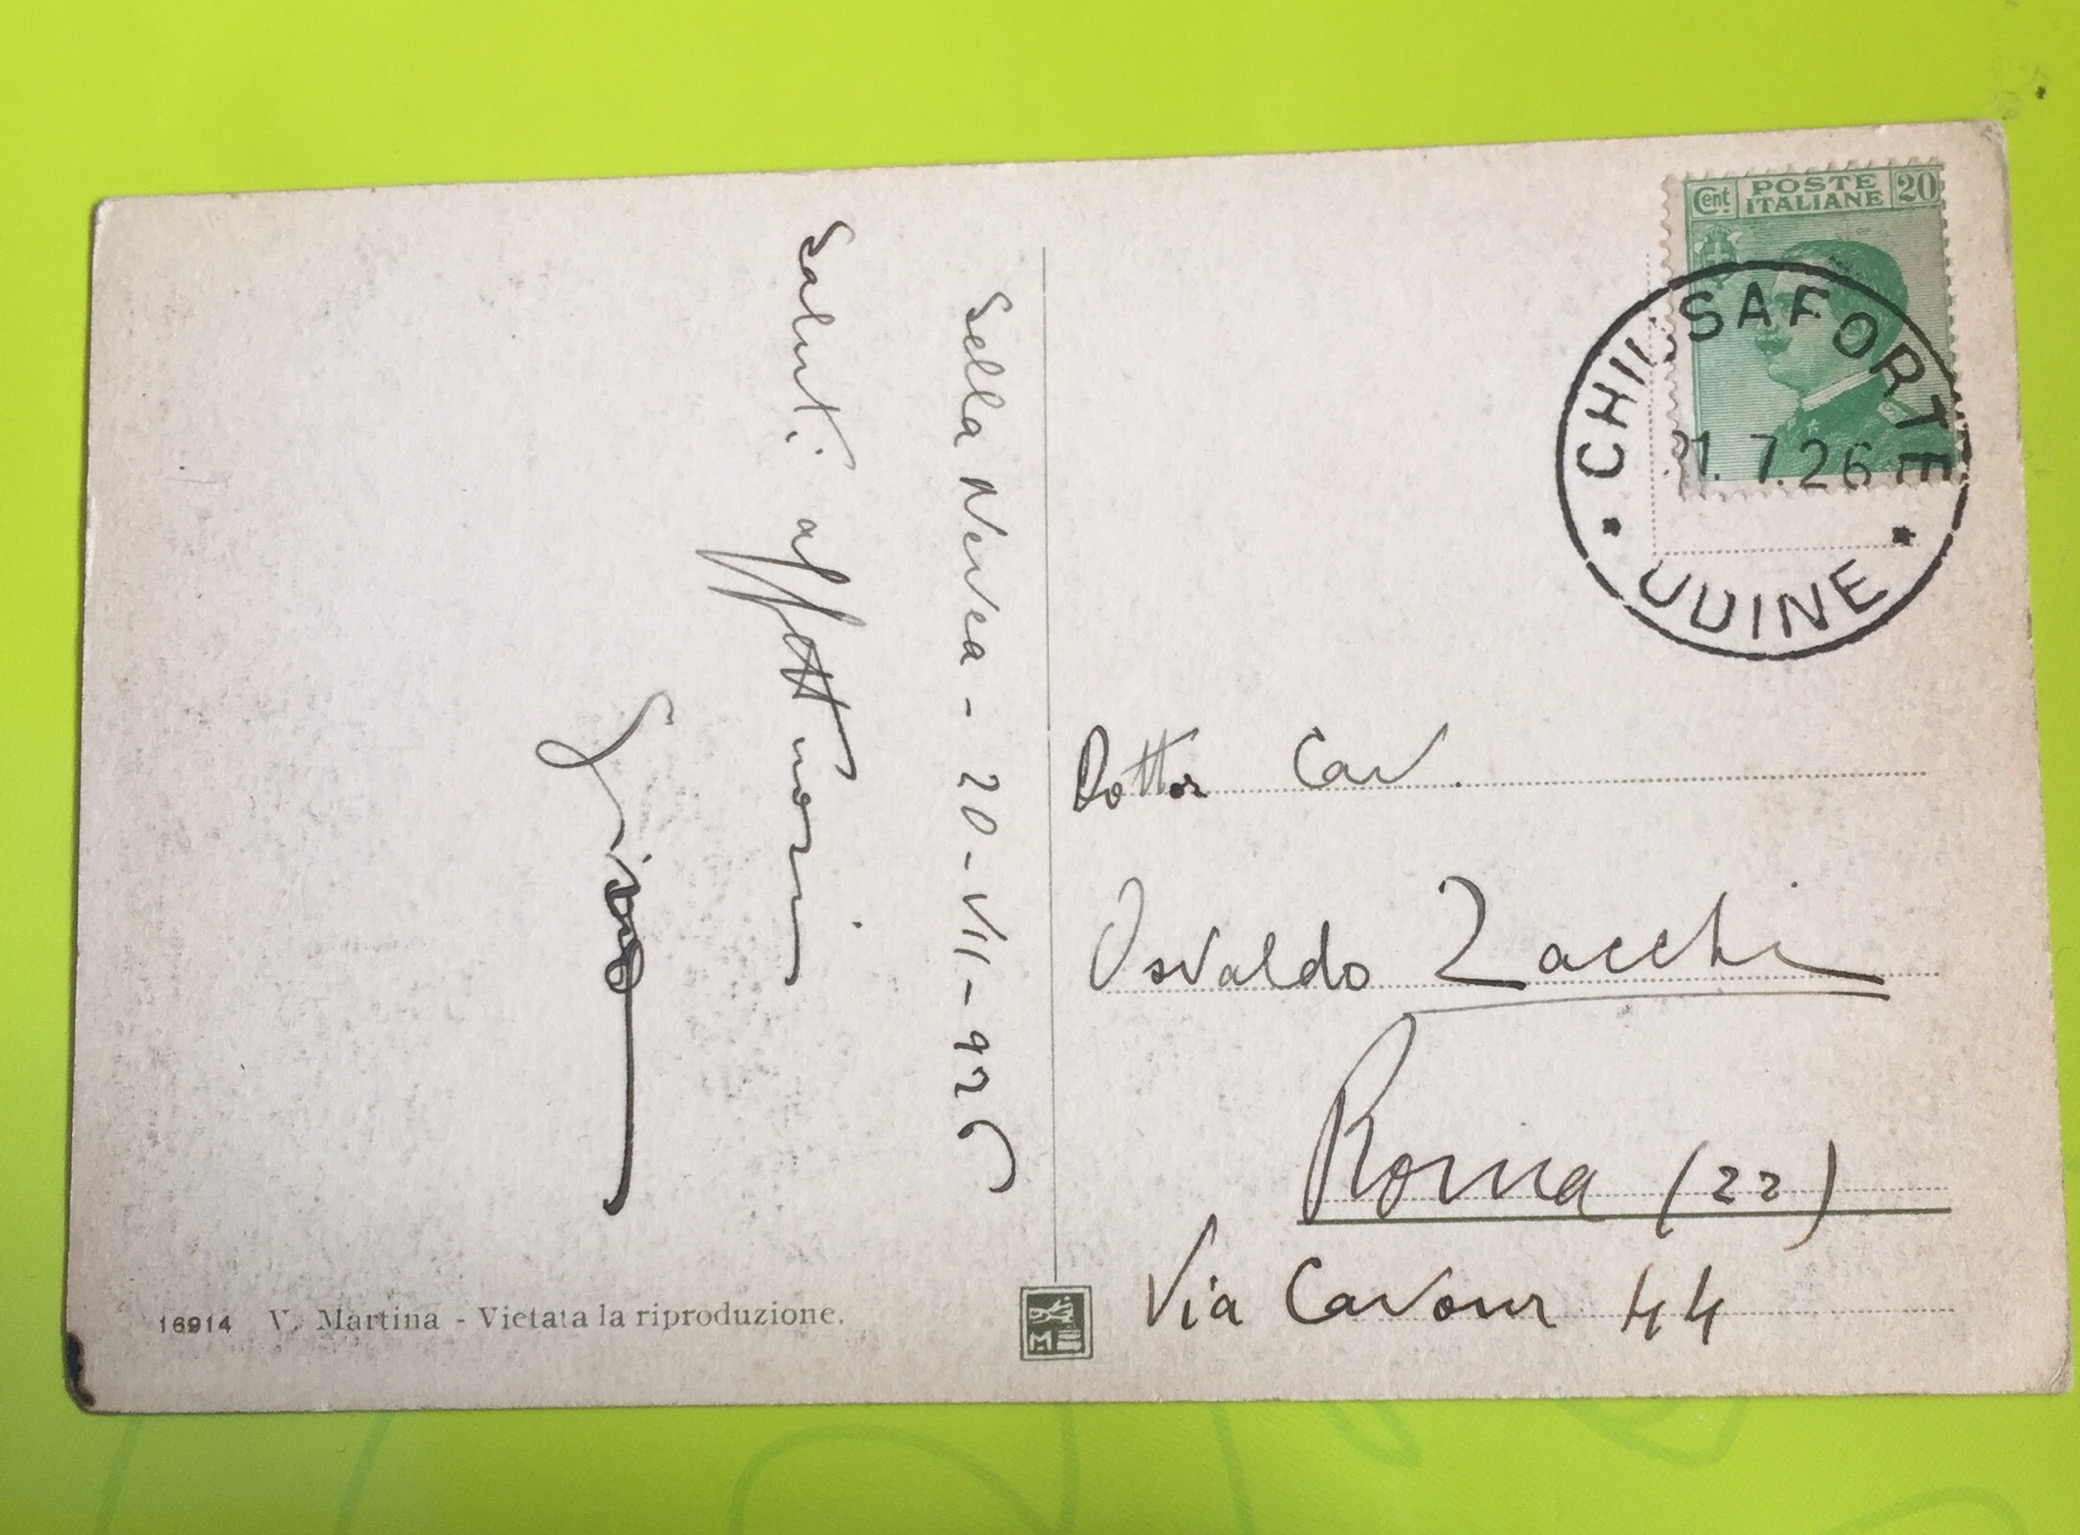 Sella Nevea - 20-VII-926
Saluti affettuosi
Cent. POSTE ITALIANE 20
CHIUSAFORTE
21.7.26
* UDINE *
Dottor Cav.
Osvaldo Zacchi
Roma (22)
Via Cavour 44
16914 V. Martina - Vietata la riproduzione.